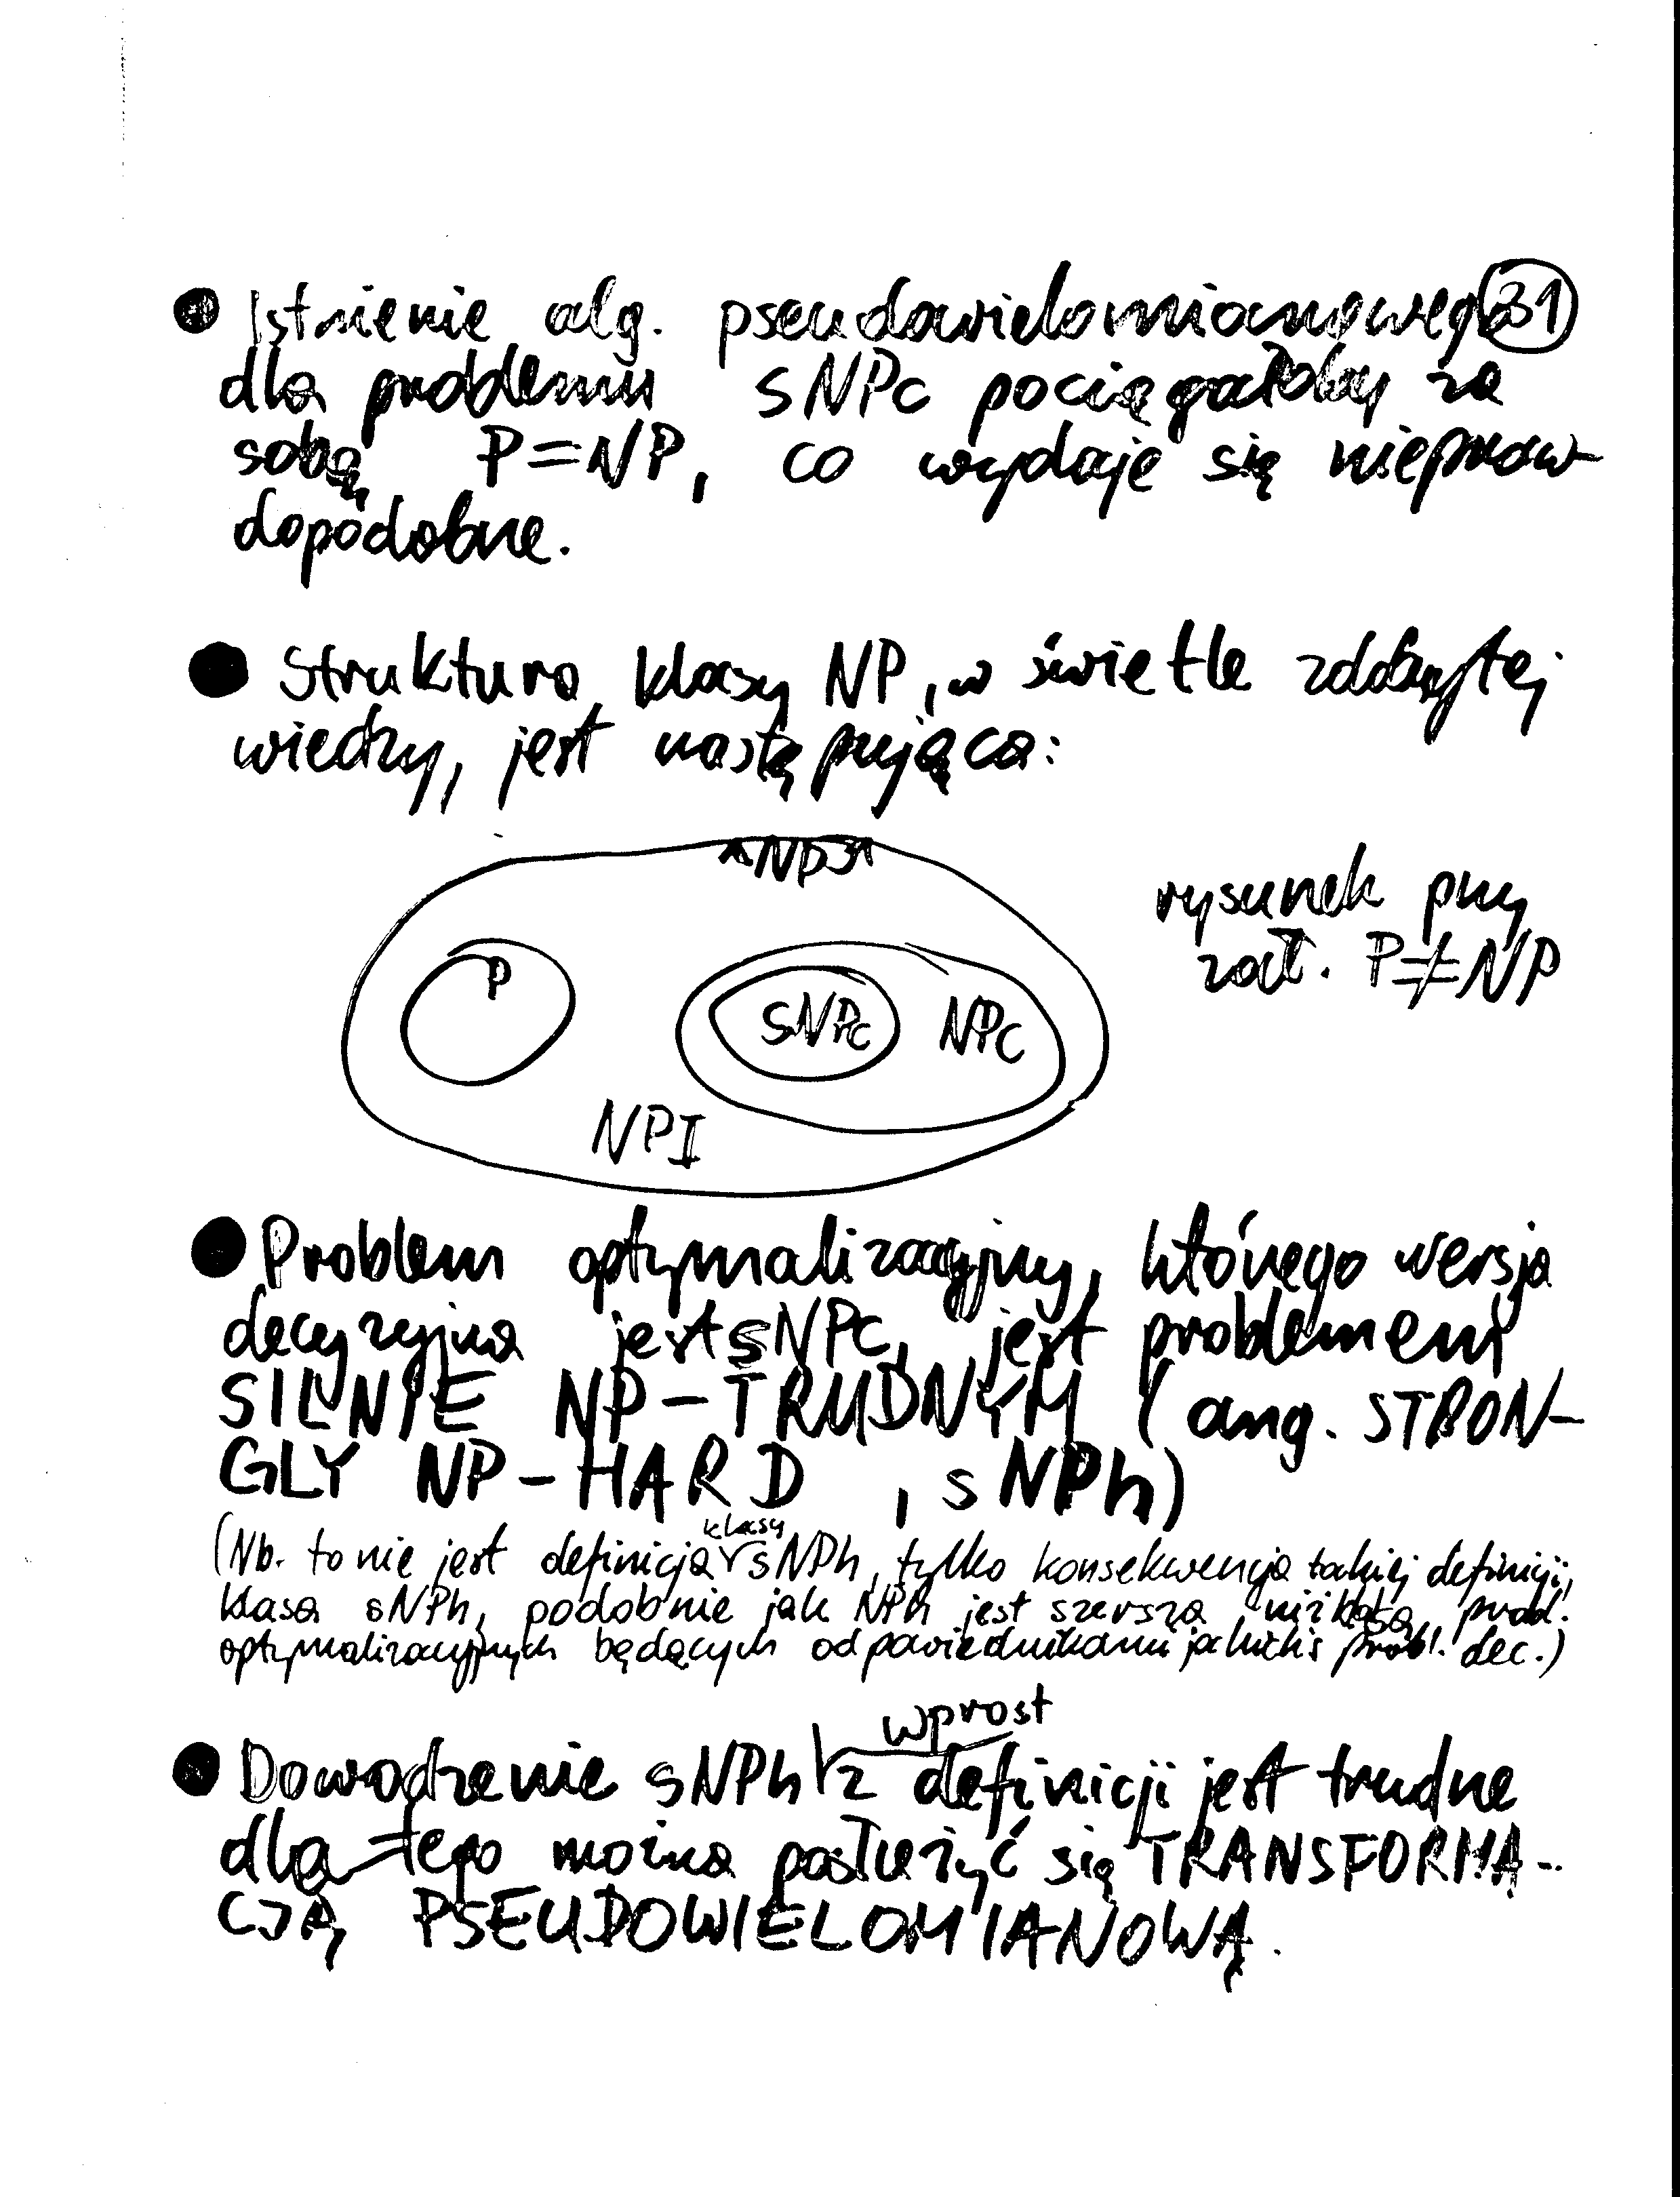 ● Istnienie alg. pseudowielomianowego (31)
dla problemu sNPc pociągałoby za
sobą P=NP, co wydaje się niepraw-
dopodobne.
● Struktura klasy NP, w świetle zdobytej
wiedzy, jest następująca:
NP
rysunek przy
zał. P≠NP
P
sNPc NPc
NPI
● Problem optymalizacyjny, którego wersja
decyzyjna jest sNPc, jest problemem
SILNIE NP-TRUDNYM (ang. STRON-
GLY NP-HARD, sNPh)
(Nb. to nie jest definicja klasy sNPh, tylko konsekwencja takiej definicji,
klasa sNPh, podobnie jak NPh jest szersza niż klasa probl.
optymalizacyjnych będących odpowiednikami jakichś probl. dec.)
● Dowodzenie sNPh wprost z definicji jest trudne
dla-tego można posłużyć się TRANSFORMA-
CJĄ PSEUDOWIELOMIANOWĄ.